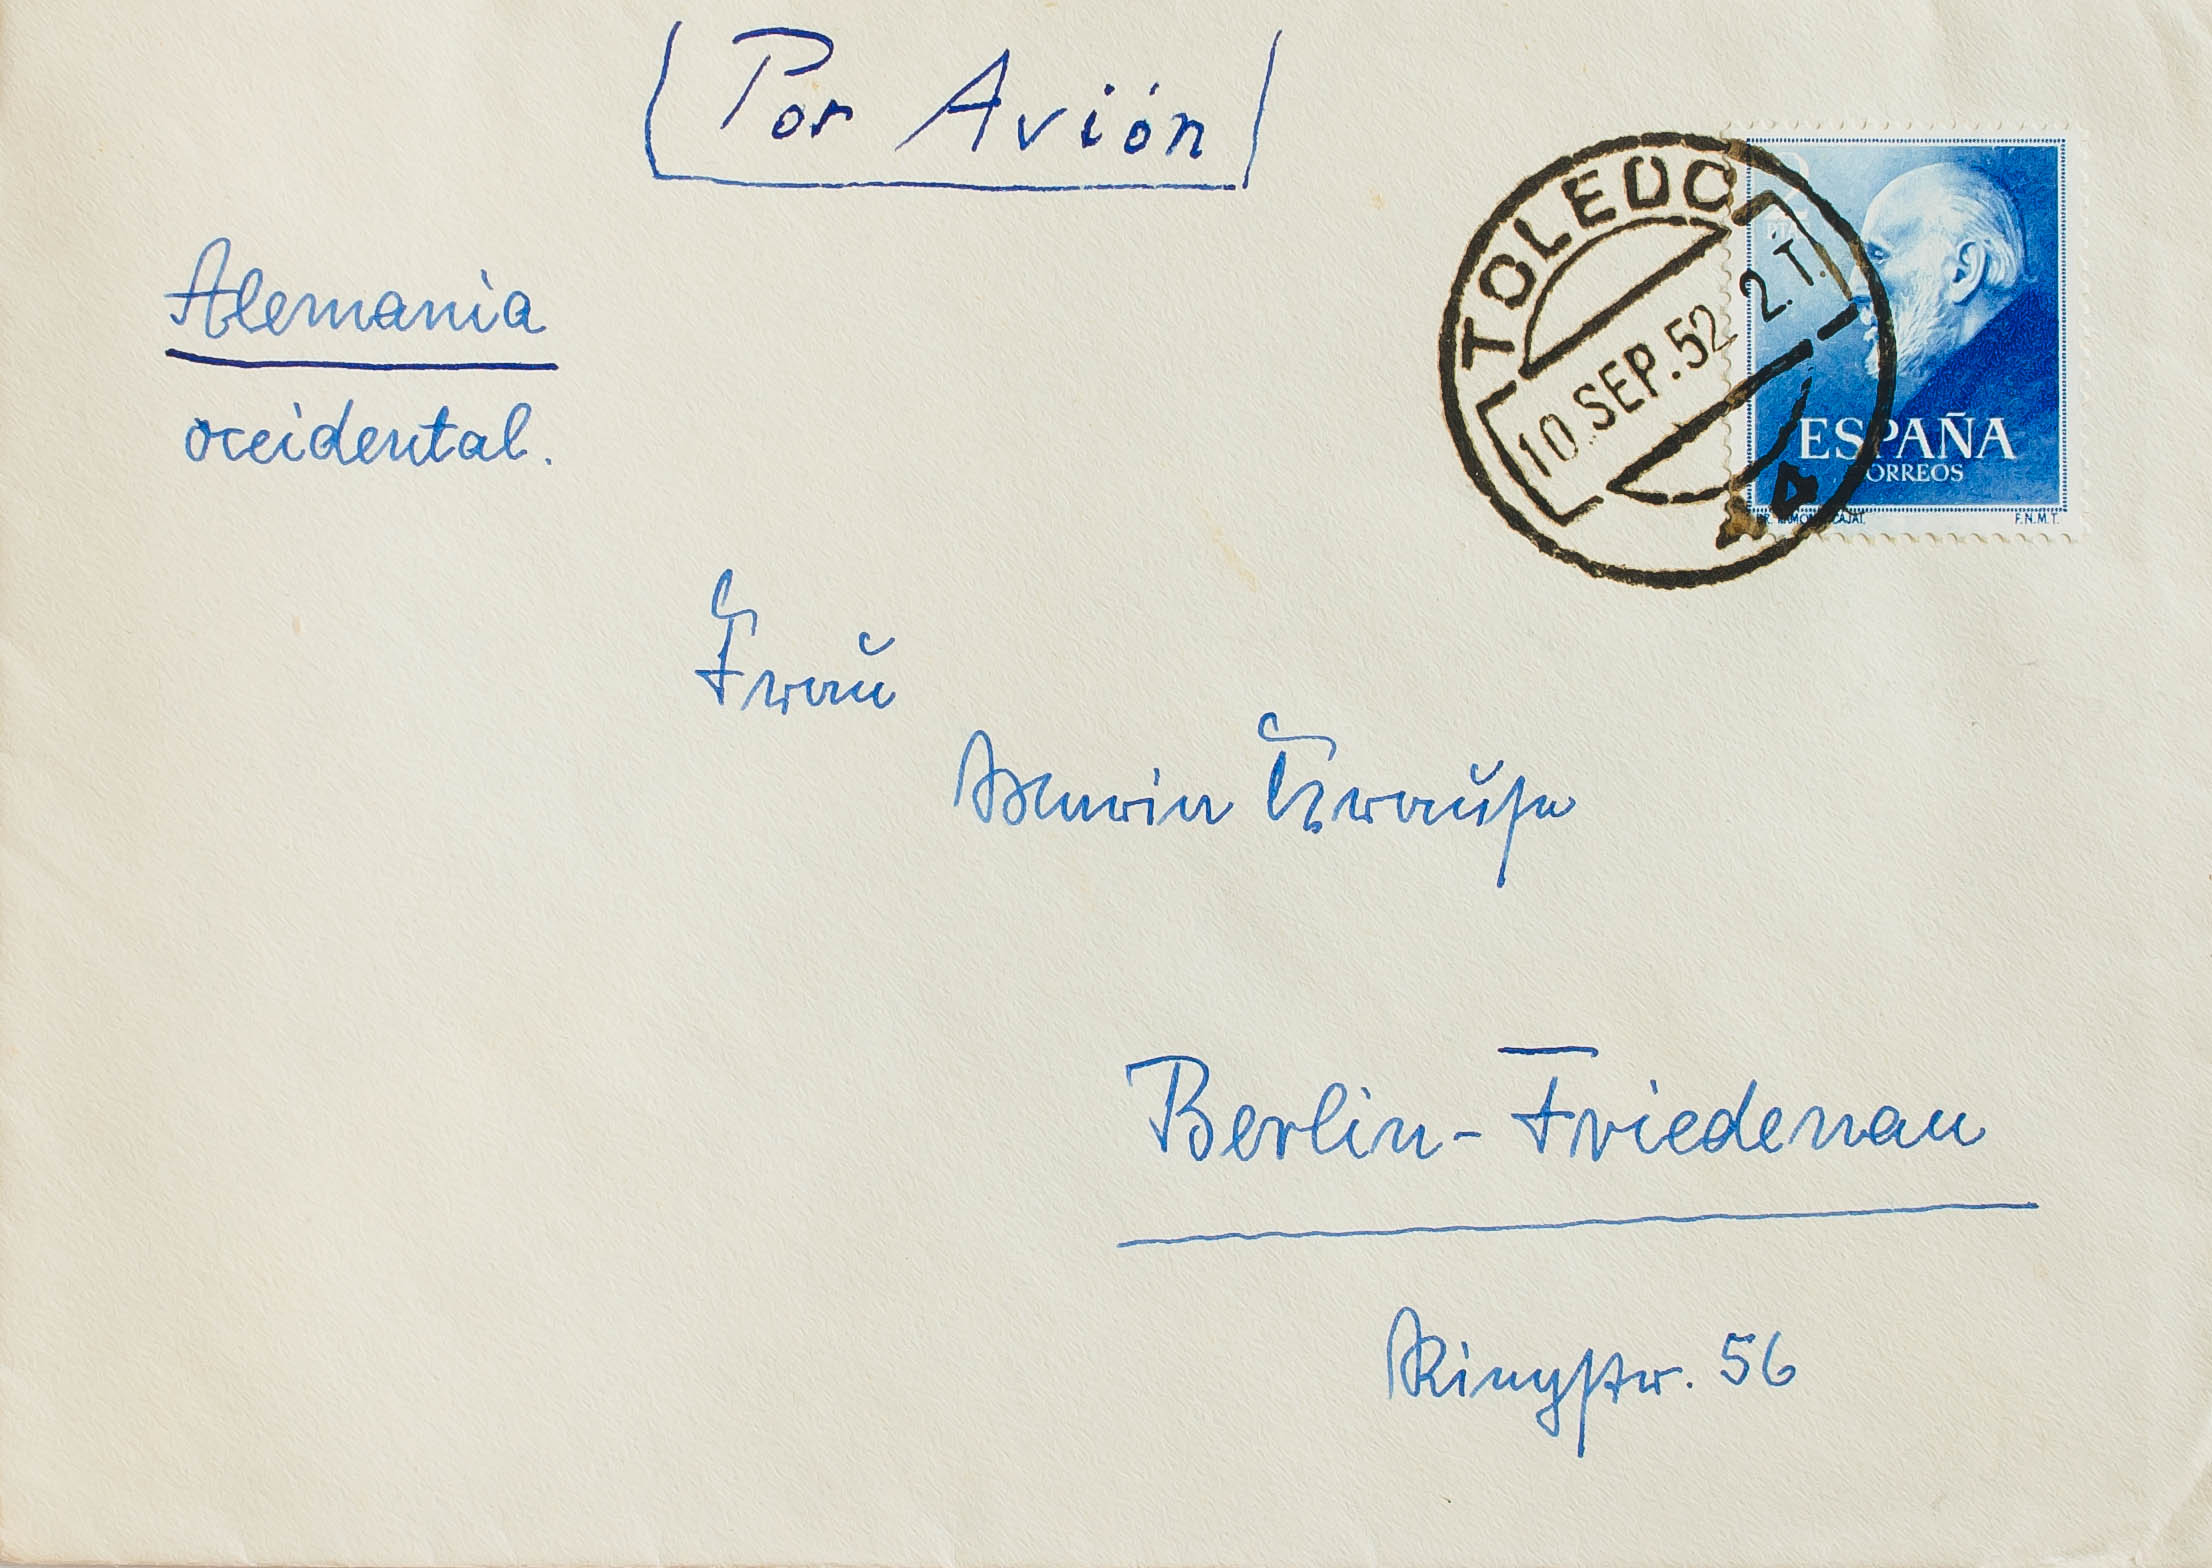 Por Avión
TOLEDO
10.SEP.52 2.T.
4
ESPAÑA
CORREOS
DR. RAMON Y CAJAL
F.N.M.T.
Alemania
occidental.
Frau
Maria Krause
Berlin-Friedenau
Ringstr. 56